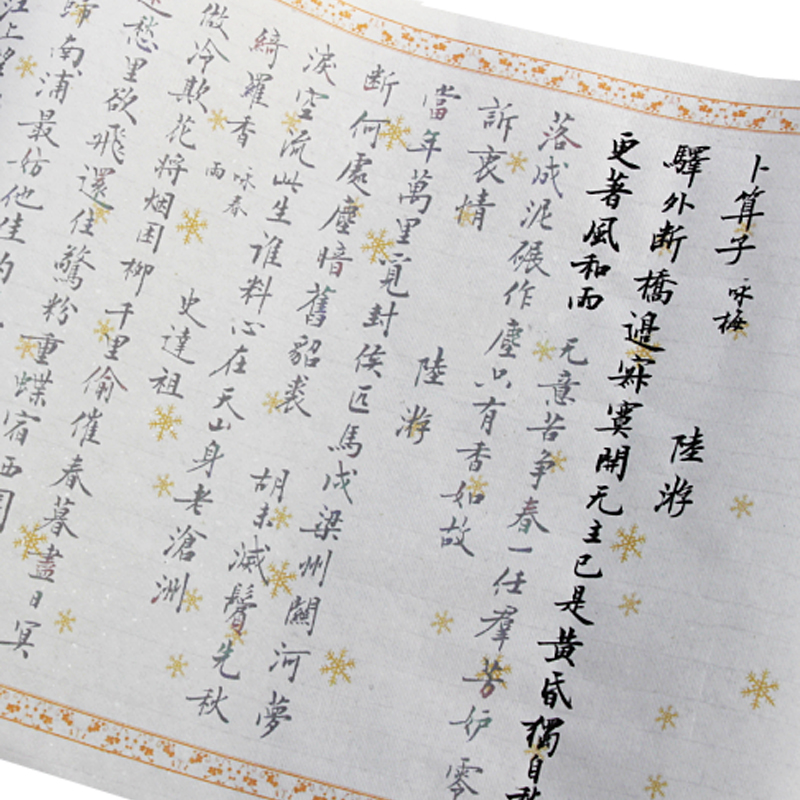 卜算子 咏梅 陸游
驛外断橋邊寂寞開无主已是黄昏獨自
更著風和雨 无意苦争春一任羣芳妒零
落成泥碾作塵只有香如故
訴衷情 陸游
當年萬里覓封侯匹馬戍梁州關河夢
断何處塵暗舊貂裘 胡未滅鬢先秋
淚空流此生谁料心在天山身老滄洲
綺羅香 咏春雨 史達祖
做冷欺花将烟困柳千里偷催春暮盡日冥
迷愁里欲飛還住驚粉重蝶宿西園
歸南浦最妨他佳約
江上望